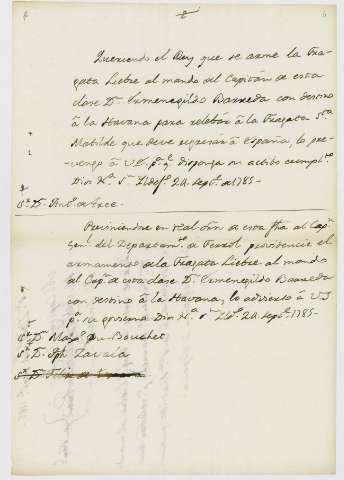 Queriendo el Rey que se arme la Fra-
gata Liebre al mando del Capitán de esta
clase Dn. Ermenegildo Barreda con destino
à la Havana para relebar à la Fragata Sta.
Matilde que deve regresar à España, lo pre-
vengo à V.E. pa. qe. disponga su activo cumplto.
Dios &a. Sn. Ildefo. 24 septre. de 1785-
Sr. Dn. Anto. de Arce.
Previniendose en real orn. de esta fha al Capn.
Genl. del Departamto. de Ferrol providencie el
armamento de la Fragata Liebre al mando
del Capn. de esta clase Dn. Ermenegildo Barreda
con destino à la Havana, lo advierto à V.S.
pa. su govierno Dios &a. Sn. Ildo. 24 septre. 1785-
Sr. Dn. du Bouchet
Sr. Dn. Jph Zavala
Sr. Dn. Felix de